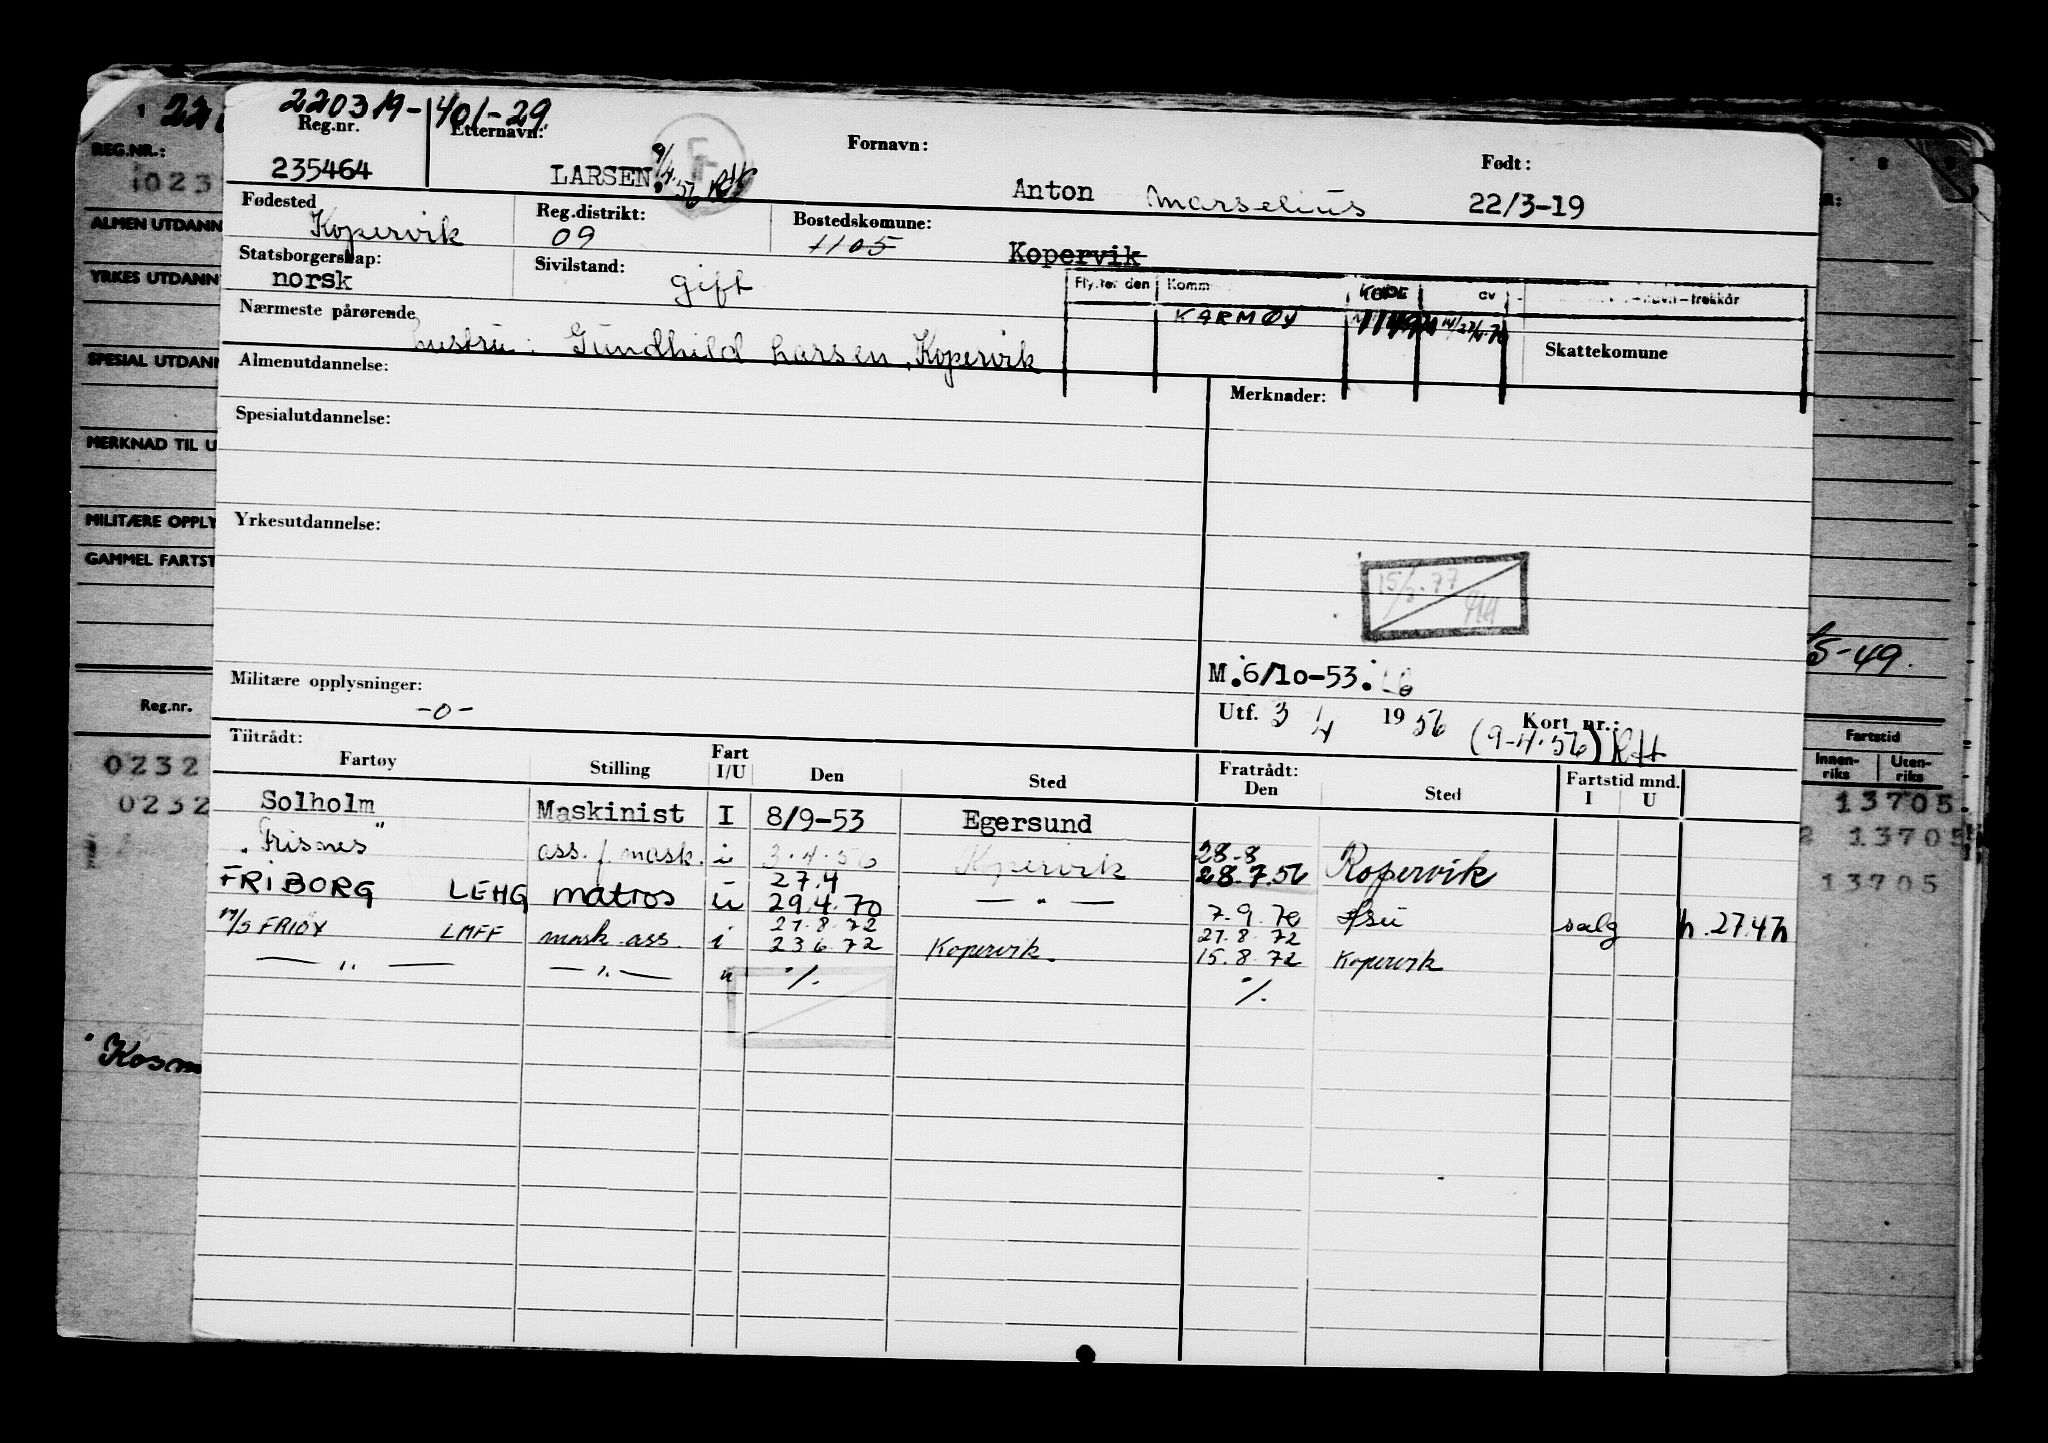 220319-401-29
Reg.nr. Etternavn: Fornavn: Født:
235464 LARSEN. 9/4.56 RH Anton Marselius 22/3-19
Fødested Reg.distrikt: Bostedskomune:
Kopervik 09 1105 Kopervik
Statsborgerskap: Sivilstand:
norsk gift
Flyttet den Komm KODE av
KARMØY 1149
Nærmeste pårørende
hustru: Gundhild Larsen, Kopervik
Skattekomune
Almenutdannelse: Merknader:
Spesialutdannelse:
Yrkesutdannelse:
M.6/10-53.
Militære opplysninger:
-0-
Utf. 3/4 1956 Kort nr.:
(9-4.56) RH
Tiltrådt: Fratrådt:
Fartøy Stilling Fart I/U Den Sted Den Sted Fartstid mnd. I U
Solholm Maskinist I 8/9-53 Egersund
"Frisnes" ass. f. mask. i 3.4.56 Kopervik 28-8 28.7.56 Kopervik
FRIBORG LEHG matros u 27.4 29.4.70 — " — 7.9.70 salg
M/S FRIOY LMFF mask.ass. i 27.8.72 23 6 72 Kopervik. 27.8.72 15.8.72 Kopervik
— " — — " — u %. %.
REG.NR.:
ALMEN UTDANN
YRKES UTDANN
SPESIAL UTDANN
MERKNAD TIL U
MILITÆRE OPPLY
GAMMEL FARTST
Reg.nr.
0232
0232
Kosm
5-49.
Fartstid
Innen-riks Uten-riks
13705
13705
13705